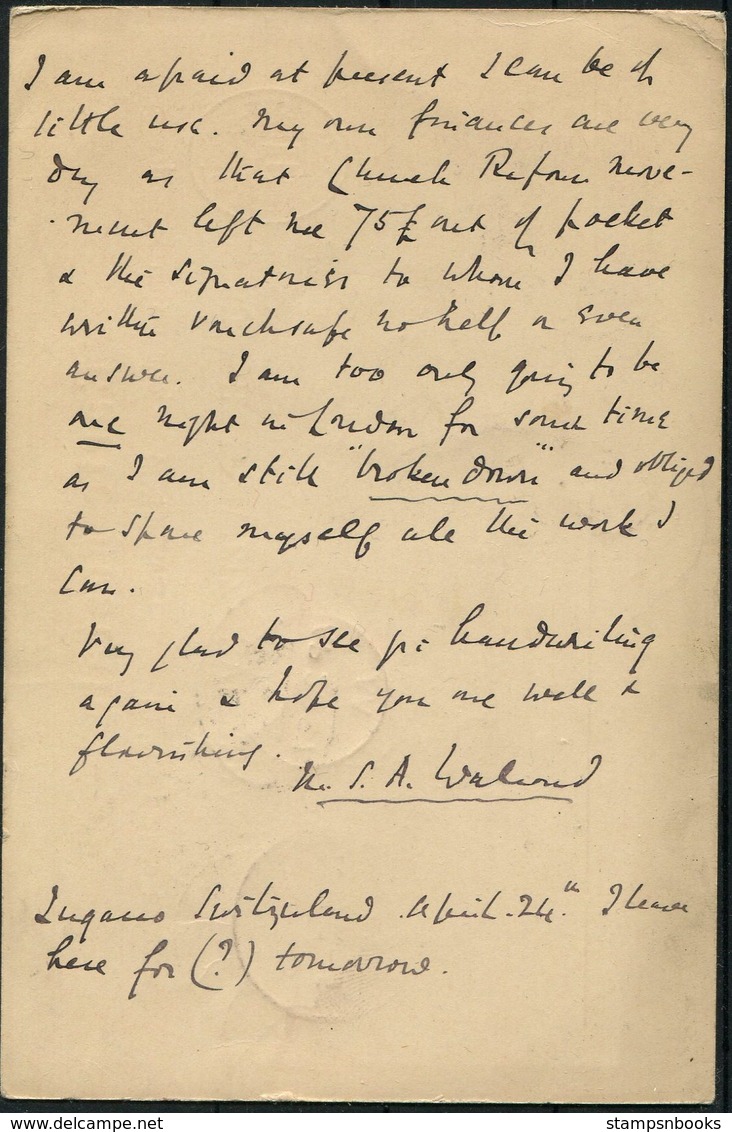 I am afraid at present I can be of
little use. My own finances are very
dry as that Church Reform move-
ment left me 75£ out of pocket
& the signatories to whom I have
written vouchsafe no help or even
answer. I am too only going to be
one night in London for some time
as I am still "broken down" and obliged
to spare myself all the work I
can.
Very glad to see yr handwriting
again & hope you are well &
flourishing.
S. A. Walrond
Lugano Switzerland April 24th I leave
here for (?) tomorrow.
stampsnbooks